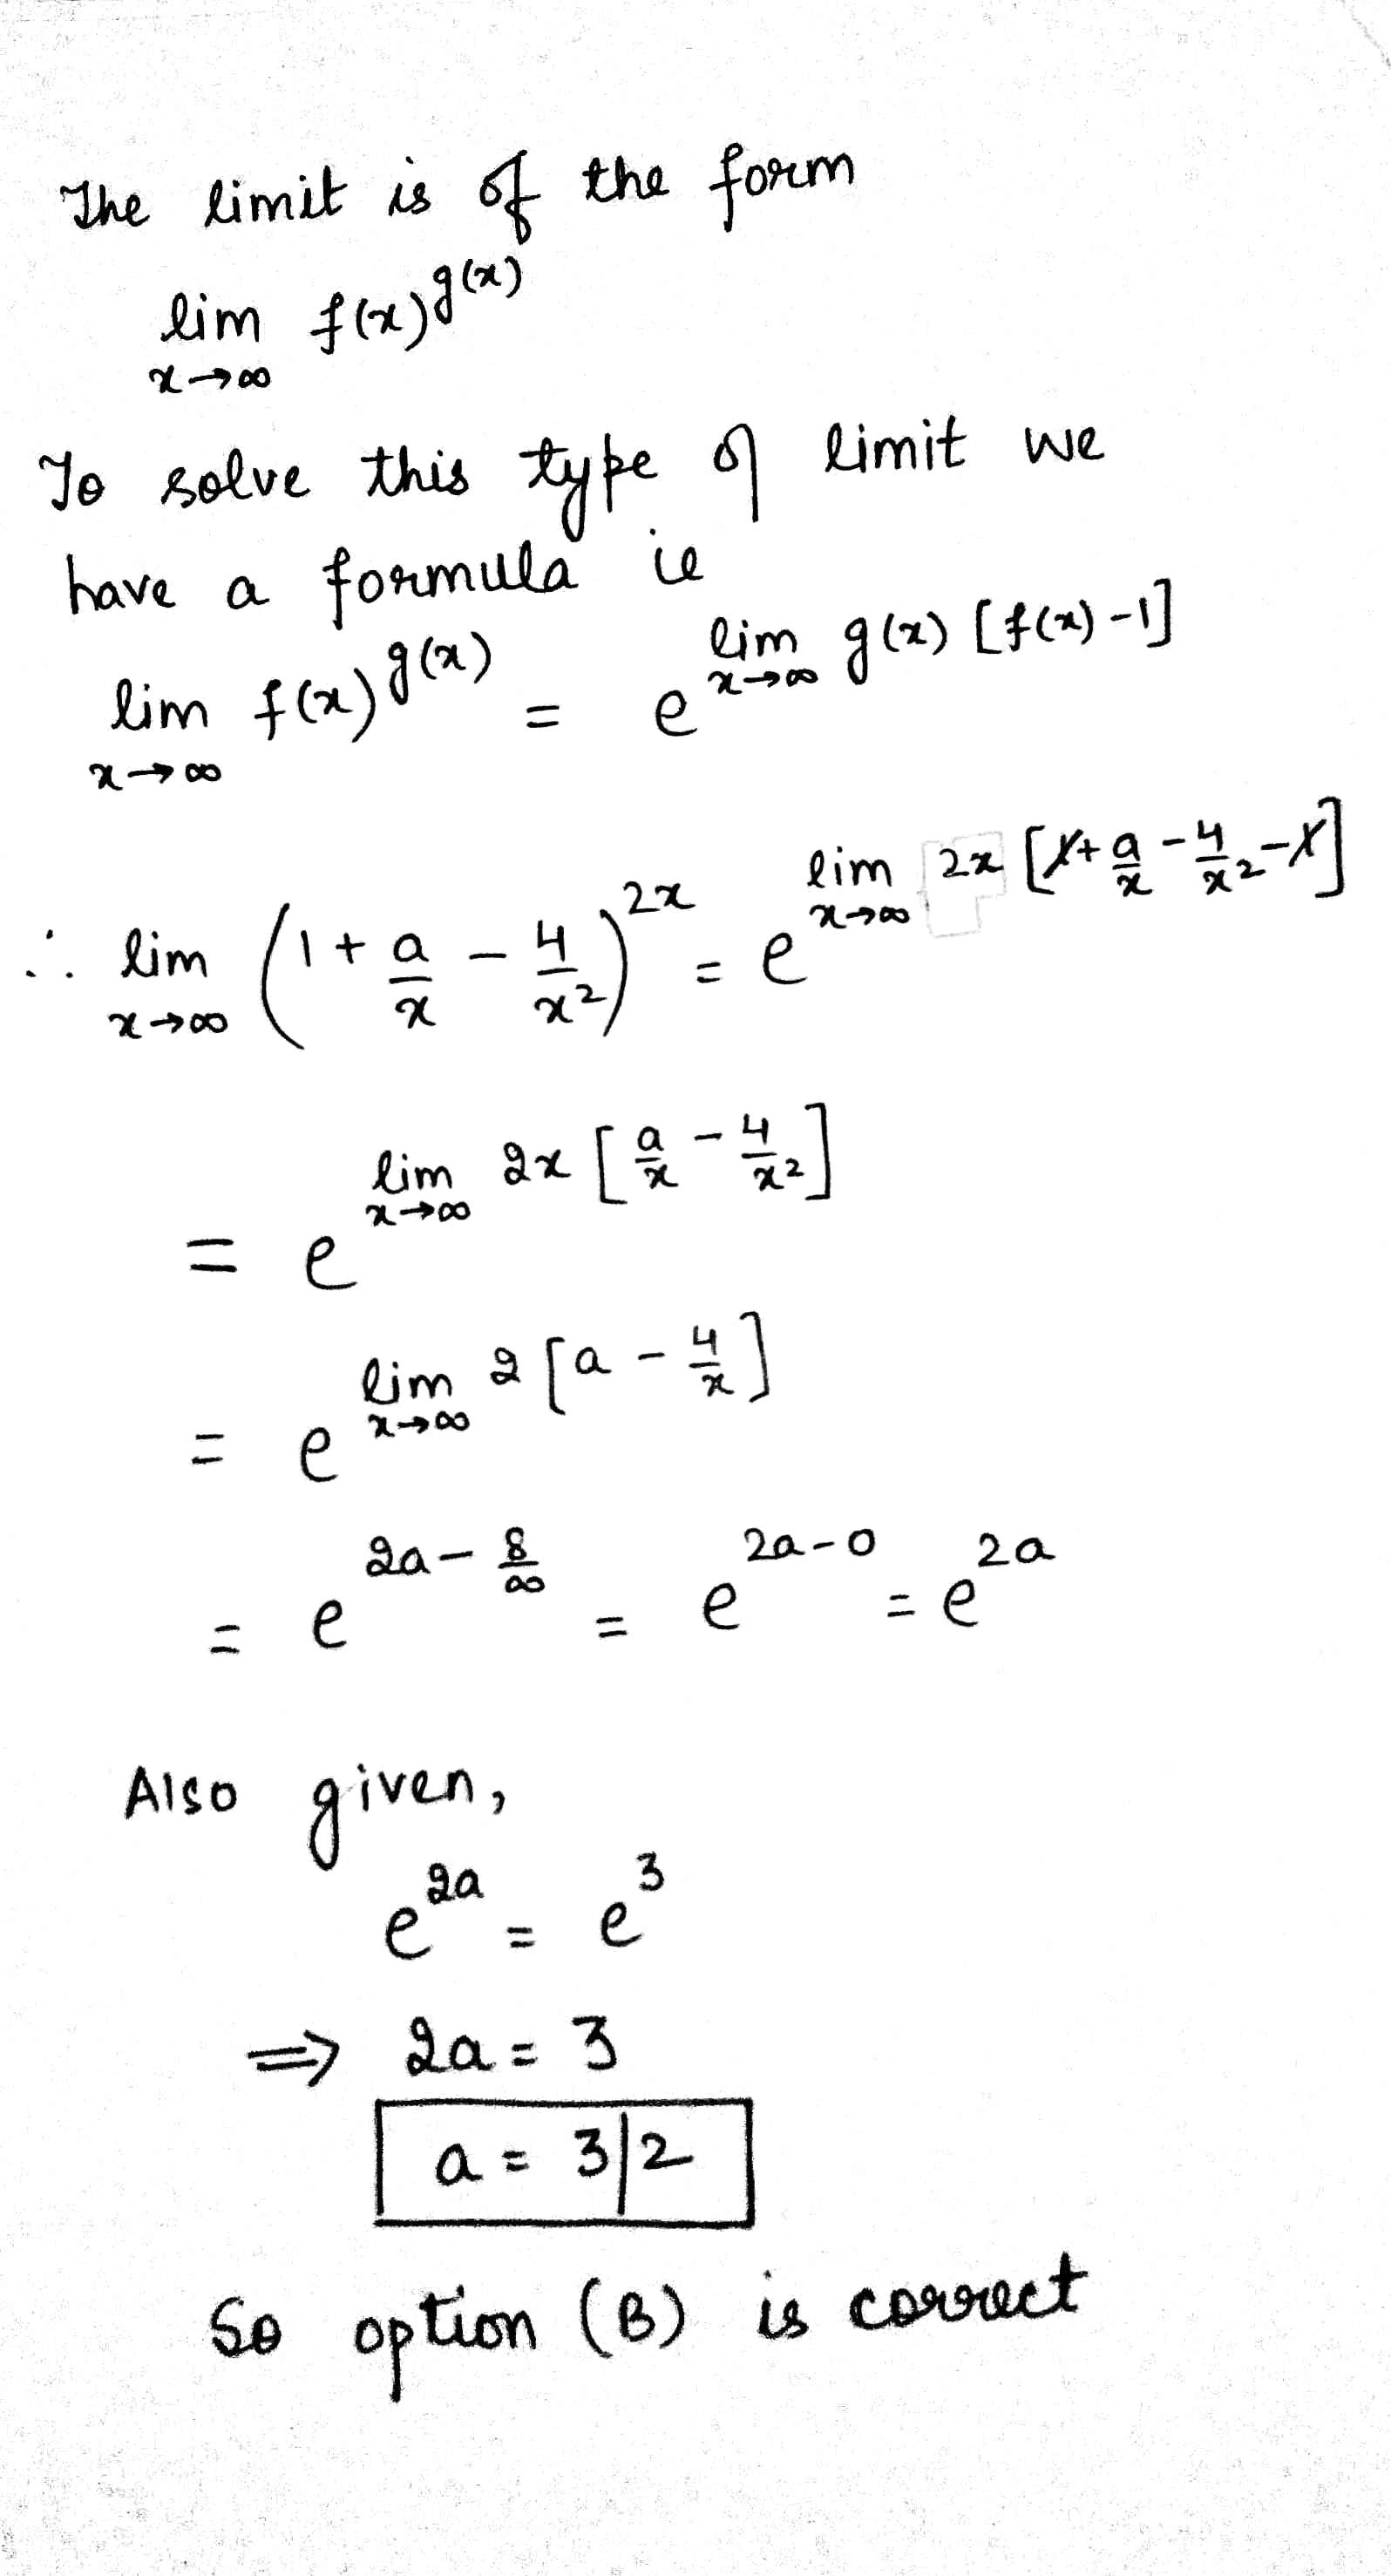 The limit is of the form
lim x→∞ f(x)^g(x)
To solve this type of limit we
have a formula ie
lim x→∞ f(x)^g(x) = e^(lim x→∞ g(x) [f(x)-1])
∴ lim x→∞ (1 + a/x - 4/x²)^2x = e^(lim x→∞ 2x [1 + a/x - 4/x² - 1])
= e^(lim x→∞ 2x [a/x - 4/x²])
= e^(lim x→∞ 2 [a - 4/x])
= e^(2a - 8/∞) = e^(2a-0) = e^2a
Also given,
e^2a = e^3
⇒ 2a = 3
a = 3/2
So option (B) is correct